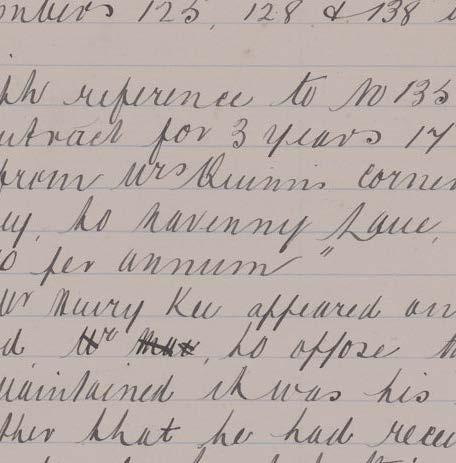 mbers 125, 128 & 138
ph reference to No 135
ntract for 3 years 17
from Mrs Quinns corner
ey, to Navenny Lane,
0 per annum"
Mr Harry Kee appeared an
d, to oppose th
maintained it was his
ther that he had recei